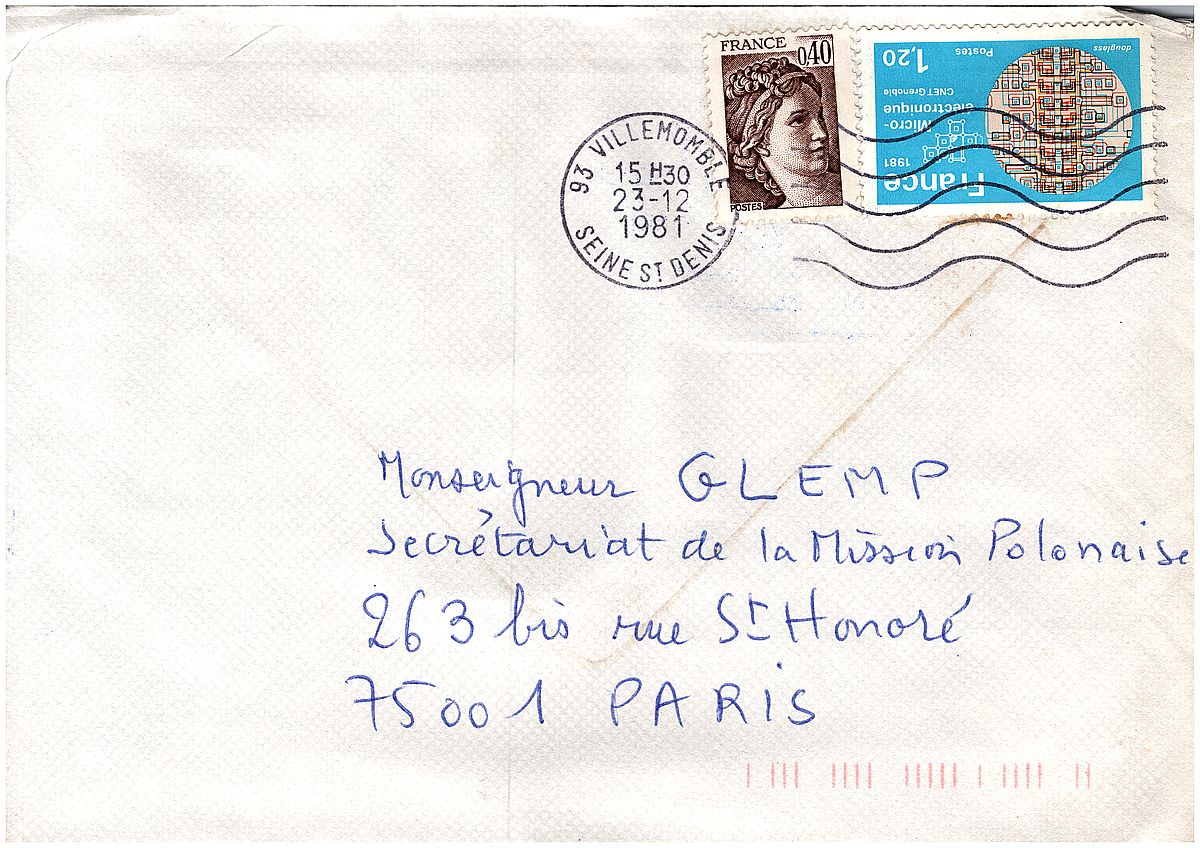 FRANCE
0,40
POSTES
1,20
Postes
douglass
CNET Grenoble
Micro-
électronique
1981
France
93 VILLEMOMBLE
15 H30
23-12
1981
SEINE ST DENIS
Monseigneur GLEMP
Secrétariat de la Mission Polonaise
263 bis rue St Honoré
75001 PARIS